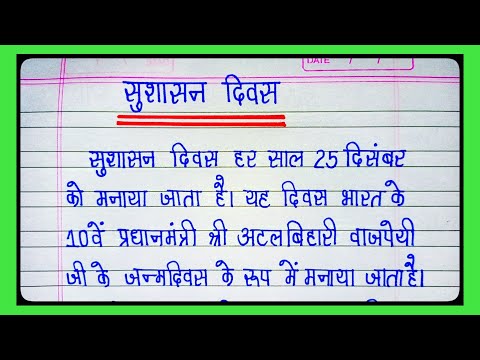 DATE / /
सुशासन दिवस
सुशासन दिवस हर साल 25 दिसंबर
को मनाया जाता है। यह दिवस भारत के
10वें प्रधानमंत्री श्री अटलबिहारी वाजपेयी
जी के जन्मदिवस के रूप में मनाया जाता है।